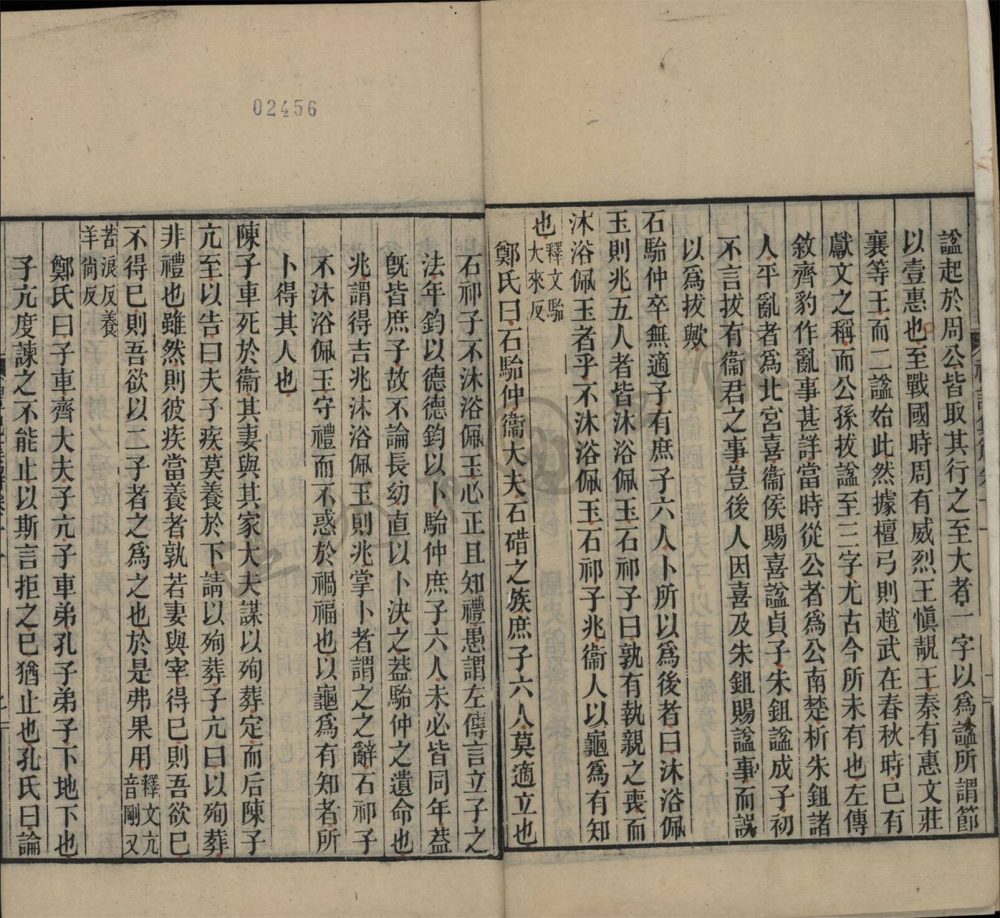 諡起於周公皆取其行之至大者一字以爲諡所謂節
以壹惠也至戰國時周有威烈王愼靚王秦有惠文莊
襄等王而二諡始此然據檀弓則趙武在春秋時已有
獻文之稱而公孫拔諡至三字尤古今所未有也左傳
敘齊豹作亂事甚詳當時從公者爲公南楚析朱鉏諸
人平亂者爲北宮喜衞侯賜喜諡貞子朱鉏諡成子初
不言拔有衞君之事豈後人因喜及朱鉏賜諡事而誤
以爲拔歟
石駘仲卒無適子有庶子六人卜所以爲後者曰沐浴佩
玉則兆五人者皆沐浴佩玉石祁子曰孰有執親之喪而
沐浴佩玉者乎不沐浴佩玉石祁子兆衞人以龜爲有知
也釋文駘大來反
鄭氏曰石駘仲衞大夫石碏之族庶子六人莫適立也
石祁子不沐浴佩玉心正且知禮愚謂左傳言立子之
法年鈞以德德鈞以卜駘仲庶子六人未必皆同年葢
旣皆庶子故不論長幼直以卜決之葢駘仲之遺命也
兆謂得吉兆沐浴佩玉則兆掌卜者謂之之辭石祁子
不沐浴佩玉守禮而不惑於禍福也以龜爲有知者所
卜得其人也
陳子車死於衞其妻與其家大夫謀以殉葬定而后陳子
亢至以告曰夫子疾莫養於下請以殉葬子亢曰以殉葬
非禮也雖然則彼疾當養者孰若妻與宰得已則吾欲已
不得已則吾欲以二子者之爲之也於是弗果用釋文亢音剛又
苦浪反養羊尙反
鄭氏曰子車齊大夫子亢子車弟孔子弟子下地下也
子亢度諫之不能止以斯言拒之已猶止也孔氏曰論
02456